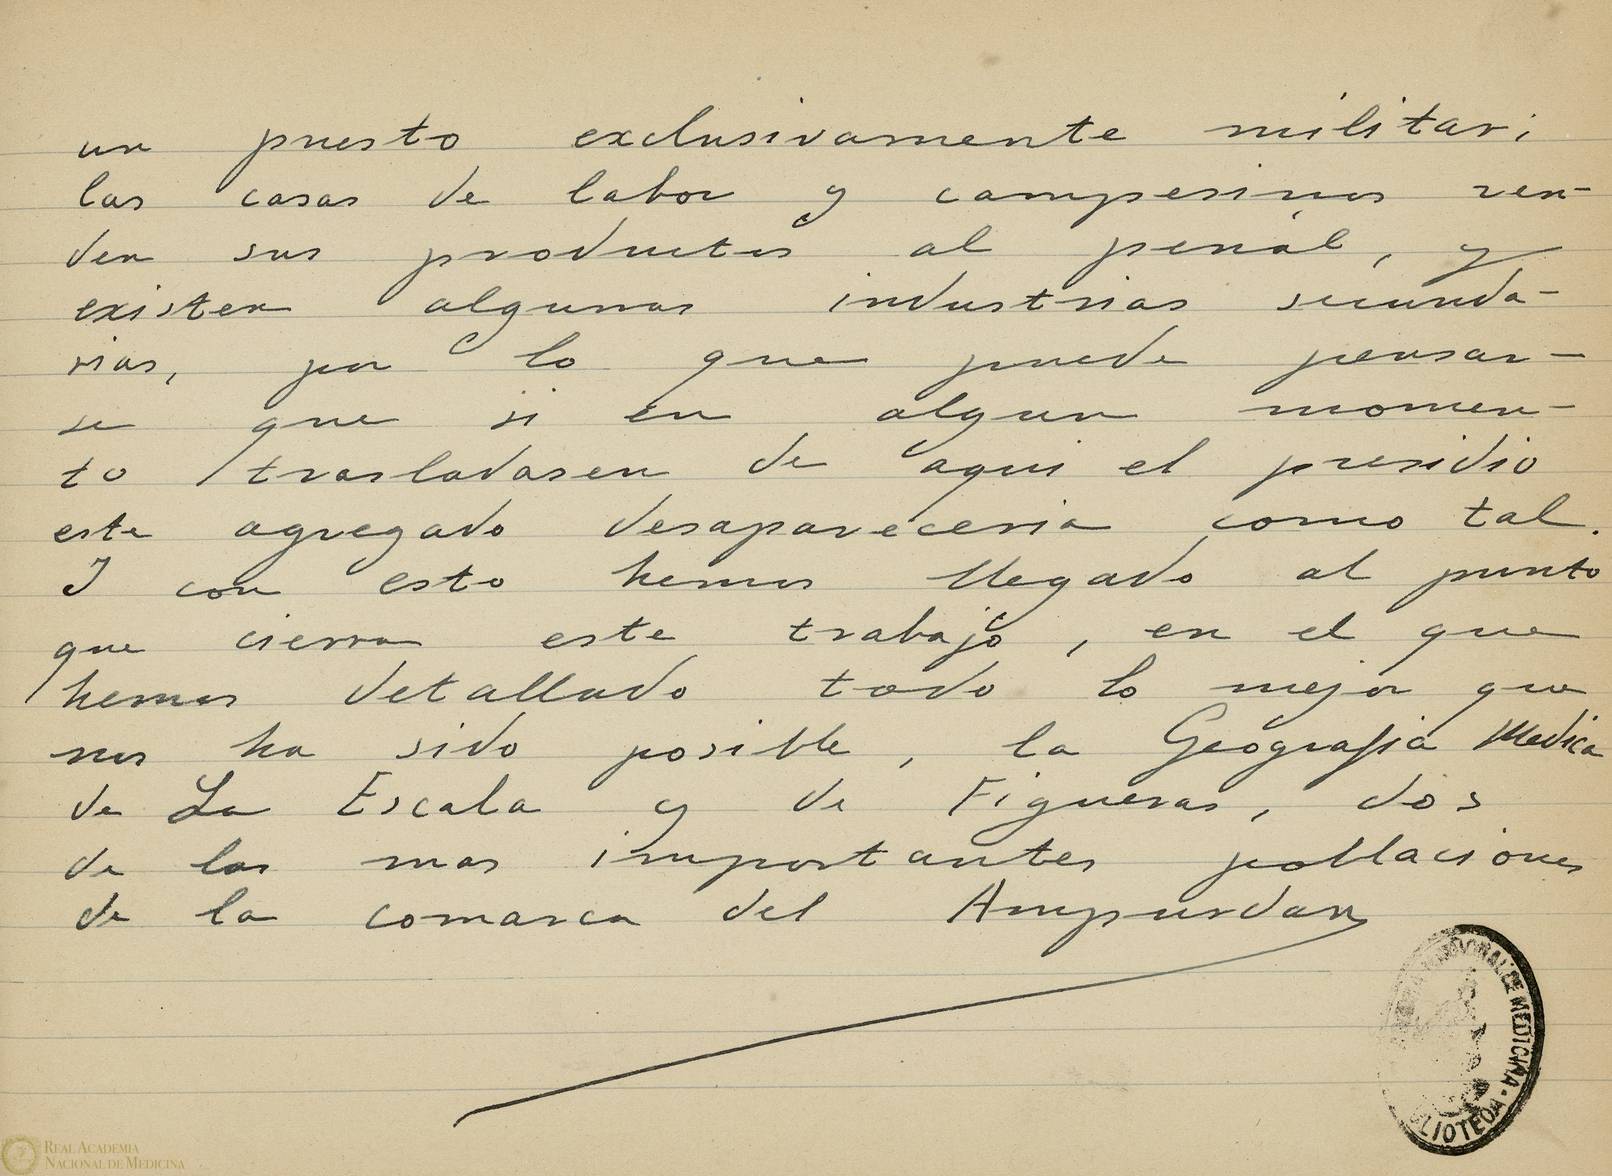 un puesto exclusivamente militar;
las casas de labor y campesinos ven-
den sus productos al penál, y
existen algunas industrias secunda-
rias, por lo que puede pensar-
se que si en algun momen-
to trasladasen de aqui el presidio
este agregado desapareceria como tal.
I con esto hemos llegado al punto
que cierra este trabajo, en el que
hemos detallado todo lo mejor que
nos ha sido posible, la Geografia Medica
de La Escala y de Figueras, dos
de las mas importantes poblaciones
de la comarca del Ampurdan
NACIONAL DE MEDICINA · BIBLIOTECA
REAL ACADEMIA
NACIONAL DE MEDICINA